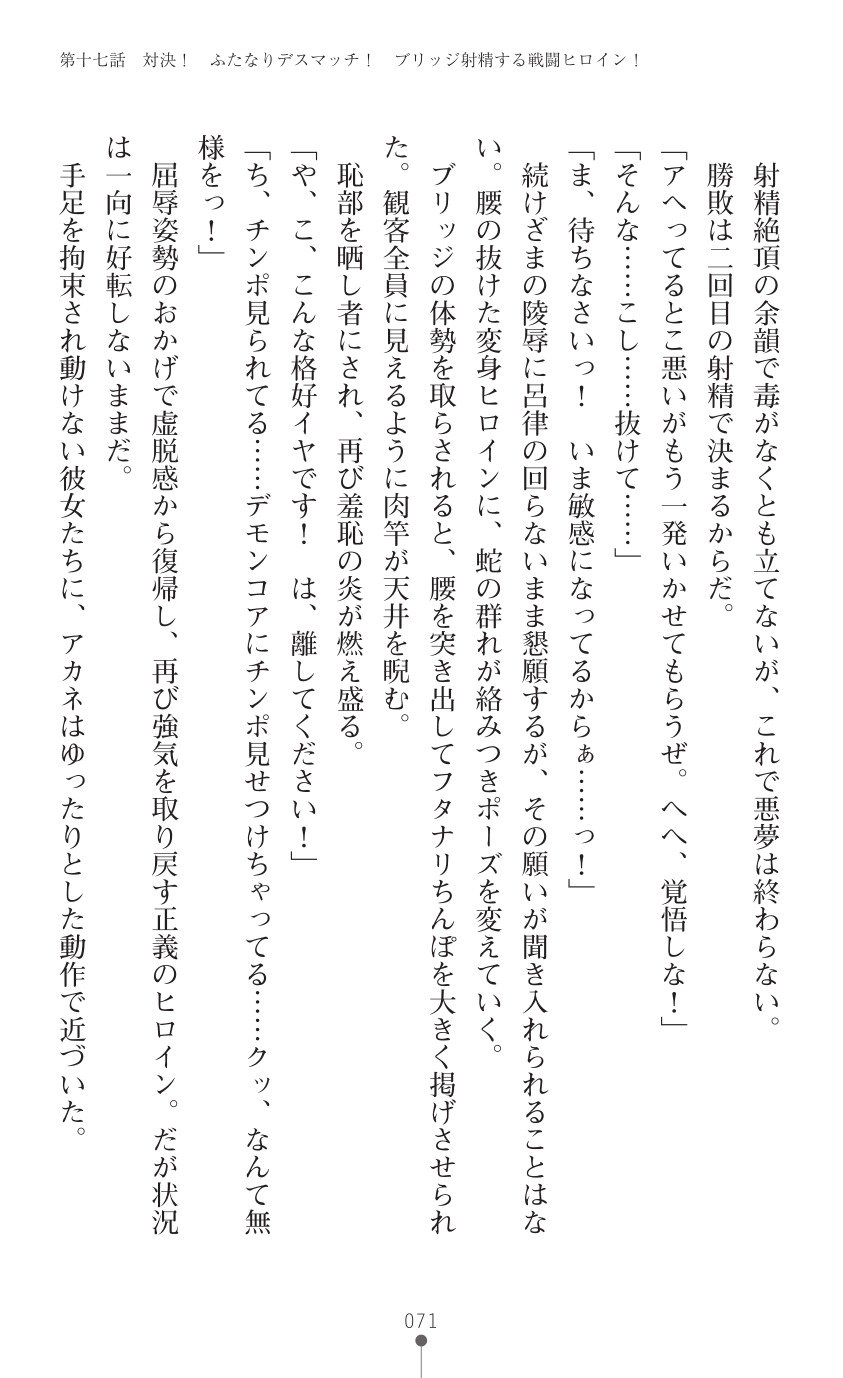 第十七話　対決！　ふたなりデスマッチ！　ブリッジ射精する戦闘ヒロイン！
　射精絶頂の余韻で毒がなくとも立てないが、これで悪夢は終わらない。
　勝敗は二回目の射精で決まるからだ。
「アヘってるとこ悪いがもう一発いかせてもらうぜ。へへ、覚悟しな！」
「そんな……こし……抜けて……」
「ま、待ちなさいっ！　いま敏感になってるからぁ……っ！」
　続けざまの陵辱に呂律の回らないまま懇願するが、その願いが聞き入れられることはな
い。腰の抜けた変身ヒロインに、蛇の群れが絡みつきポーズを変えていく。
　ブリッジの体勢を取らされると、腰を突き出してフタナリちんぽを大きく掲げさせられ
た。観客全員に見えるように肉竿が天井を睨む。
　恥部を晒し者にされ、再び羞恥の炎が燃え盛る。
「や、こ、こんな格好イヤです！　は、離してください！」
「ち、チンポ見られてる……デモンコアにチンポ見せつけちゃってる……クッ、なんて無
様をっ！」
　屈辱姿勢のおかげで虚脱感から復帰し、再び強気を取り戻す正義のヒロイン。だが状況
は一向に好転しないままだ。
　手足を拘束され動けない彼女たちに、アカネはゆったりとした動作で近づいた。
071